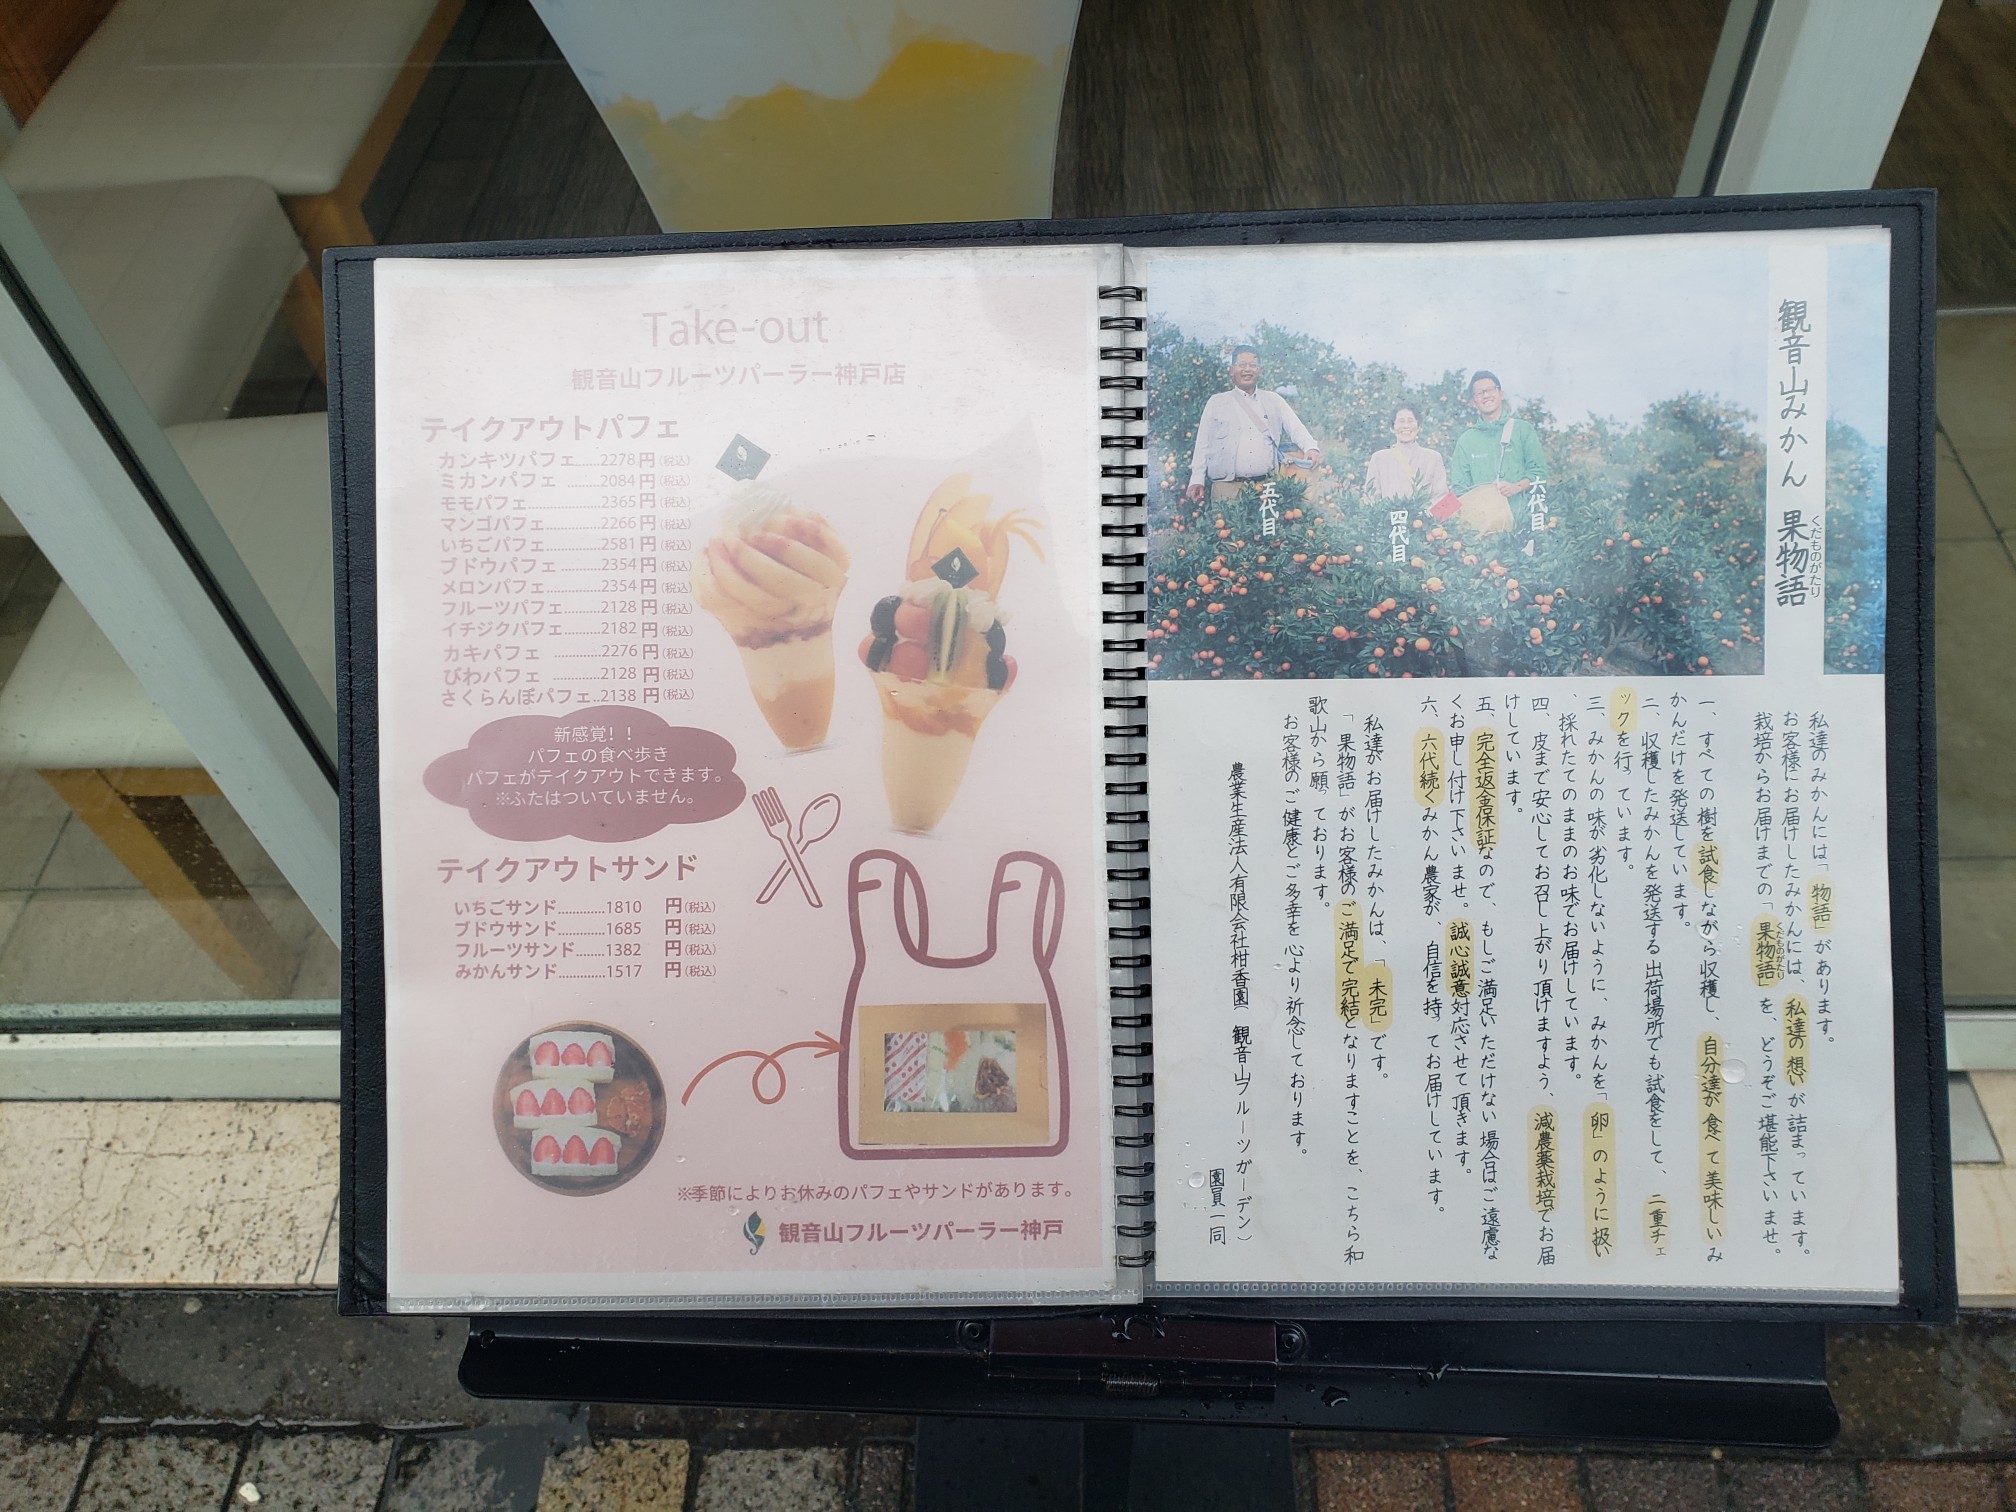 Take-out
観音山フルーツパーラー神戸店
テイクアウトパフェ
カンキツパフェ......2278円(税込)
ミカンパフェ ...........2084円(税込)
モモパフェ................2365円(税込)
マンゴパフェ............2266円(税込)
いちごパフェ............2581円(税込)
ブドウパフェ............2354円(税込)
メロンパフェ............2354円(税込)
フルーツパフェ........2128円(税込)
イチジクパフェ.........2182円(税込)
カキパフェ ..............2276円(税込)
びわパフェ ..............2128円(税込)
さくらんぼパフェ..2138円(税込)
新感覚！！
パフェの食べ歩き
パフェがテイクアウトできます。
※ふたはついていません。
テイクアウトサンド
いちごサンド.............1810 円(税込)
ブドウサンド.............1685 円(税込)
フルーツサンド.........1382 円(税込)
みかんサンド.............1517 円(税込)
※季節によりお休みのパフェやサンドがあります。
観音山フルーツパーラー神戸
観音山みかん 果物語
くだものがたり
五代目
四代目
六代目
私達のみかんには「物語」があります。
お客様にお届けしたみかんには、私達の想いが詰まっています。
栽培からお届けまでの「果物語」を、どうぞご堪能下さいませ。
くだものがたり
一、すべての樹を試食しながら収穫し、自分達が食べて美味しいみ
かんだけを発送しています。
二、収穫したみかんを発送する出荷場所でも試食をして、二重チェ
ックを行っています。
三、みかんの味が劣化しないように、みかんを「卵」のように扱い
、採れたてのままのお味でお届けしています。
四、皮まで安心してお召し上がり頂けますよう、減農薬栽培でお届
けしています。
五、完全返金保証なので、もしご満足いただけない場合はご遠慮な
くお申し付け下さいませ。誠心誠意対応させて頂きます。
六、六代続くみかん農家が、自信を持ってお届けしています。
私達がお届けしたみかんは、「未完」です。
「果物語」がお客様のご満足で完結となりますことを、こちら和
歌山から願っております。
お客様のご健康とご多幸を心より祈念しております。
農業生産法人有限会社柑香園（観音山フルーツガーデン）
園員一同